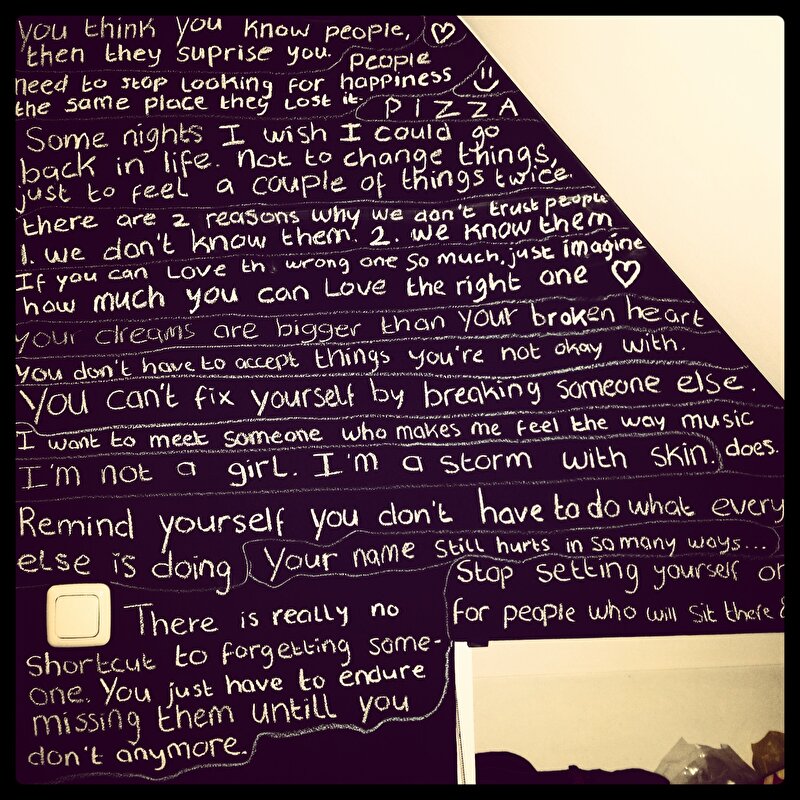 you think you know people, ♡
then they suprise you.
People
need to stop looking for happiness
the same place they lost it.
PIZZA
Some nights I wish I could go
back in life. Not to change things,
just to feel a couple of things twice.
there are 2 reasons why we don't trust people
1. we don't know them. 2. we know them
If you can love th wrong one so much, just imagine
how much you can love the right one ♡
your dreams are bigger than your broken heart
you don't have to accept things you're not okay with.
You can't fix yourself by breaking someone else.
I want to meet someone who makes me feel the way music
does.
I'm not a girl. I'm a storm with skin
Remind yourself you don't have to do what every
else is doing
Your name still hurts in so many ways...
Stop setting yourself on
for people who will sit there &
There is really no
shortcut to forgetting some-
one. You just have to endure
missing them untill you
don't anymore.